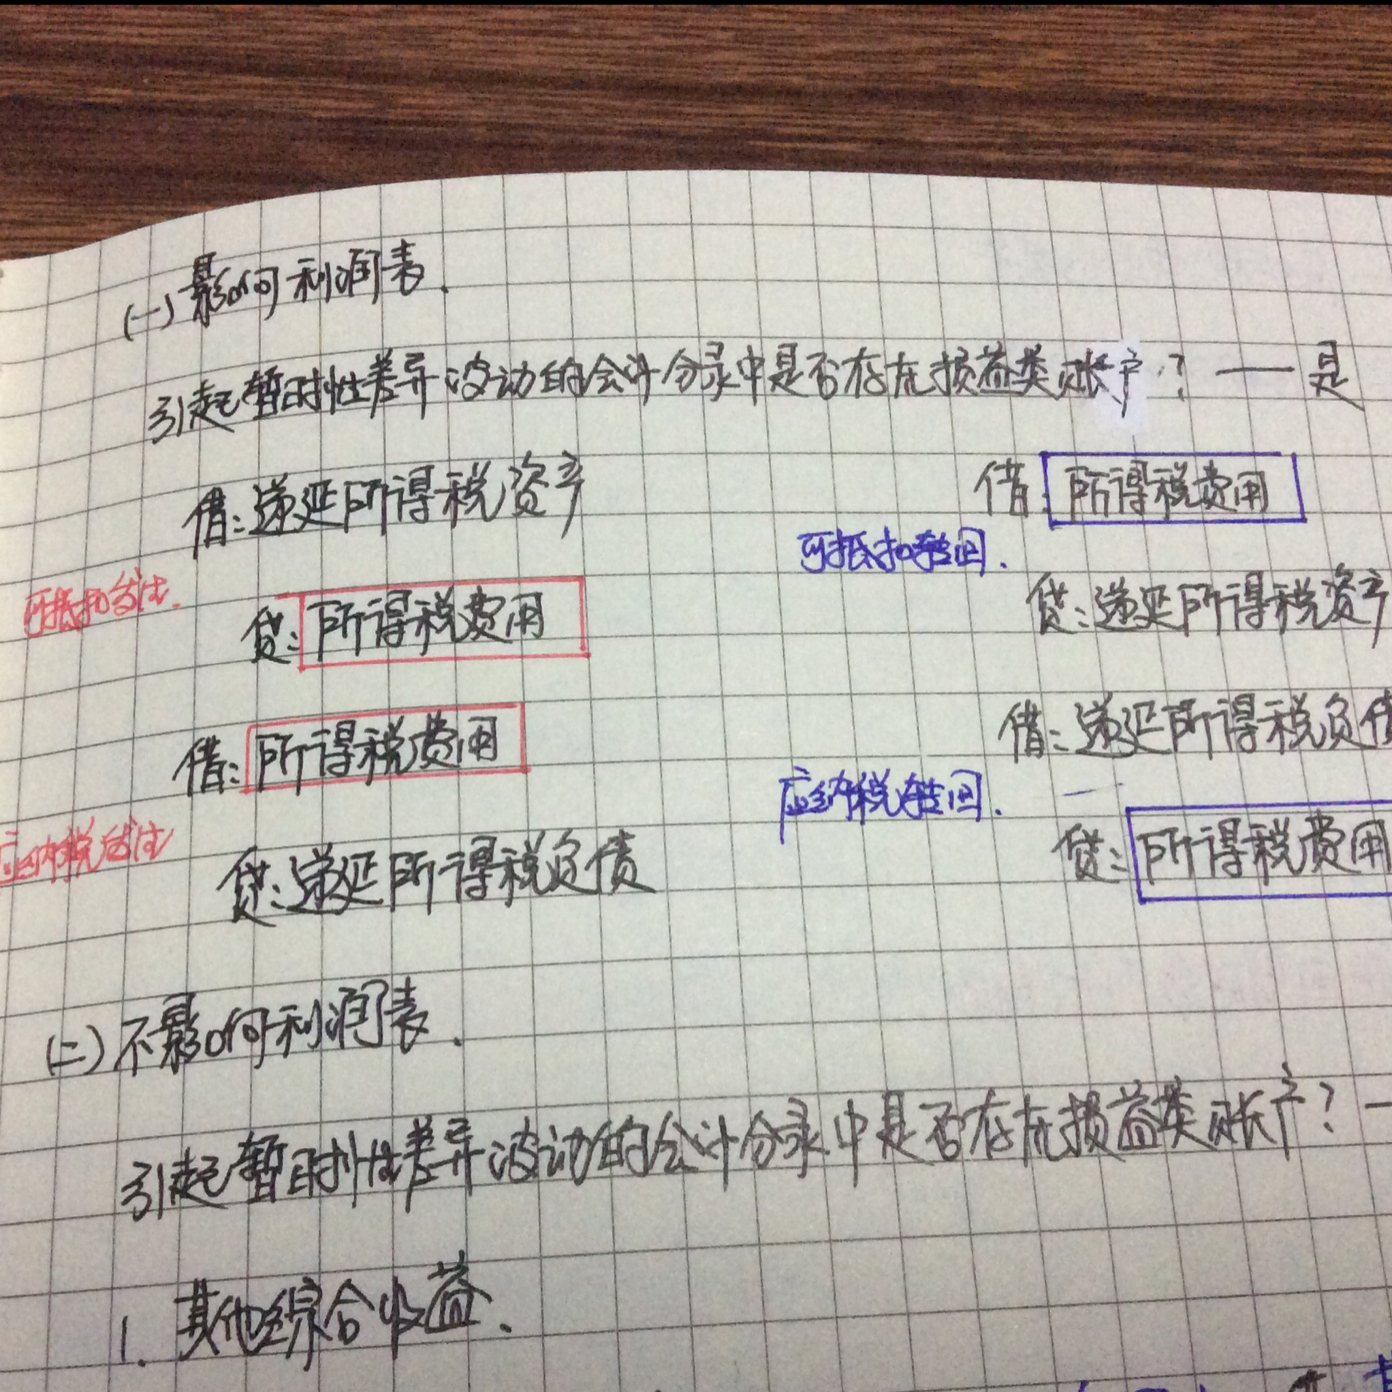 (一)影响利润表.
引起暂时性差异波动的会计分录中是否存在损益类账户？——是
借:递延所得税资产
借:所得税费用
可抵扣转回.
可抵扣发生.
贷:所得税费用
贷:递延所得税资产
借:所得税费用
借:递延所得税负债
应纳税转回.
应纳税发生
贷:递延所得税负债
贷:所得税费用
(二)不影响利润表.
引起暂时性差异波动的会计分录中是否存在损益类账户？—
1.其他综合收益.